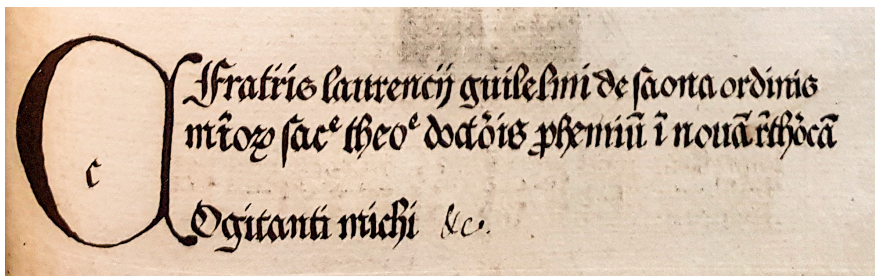 Fratris laurencij guilelmi de saona ordinis
mīoꝝ sacᵉ theoᵉ doctōis ꝓhemiū ī nouā rͫthōcā
c
Ogitanti michi &c.